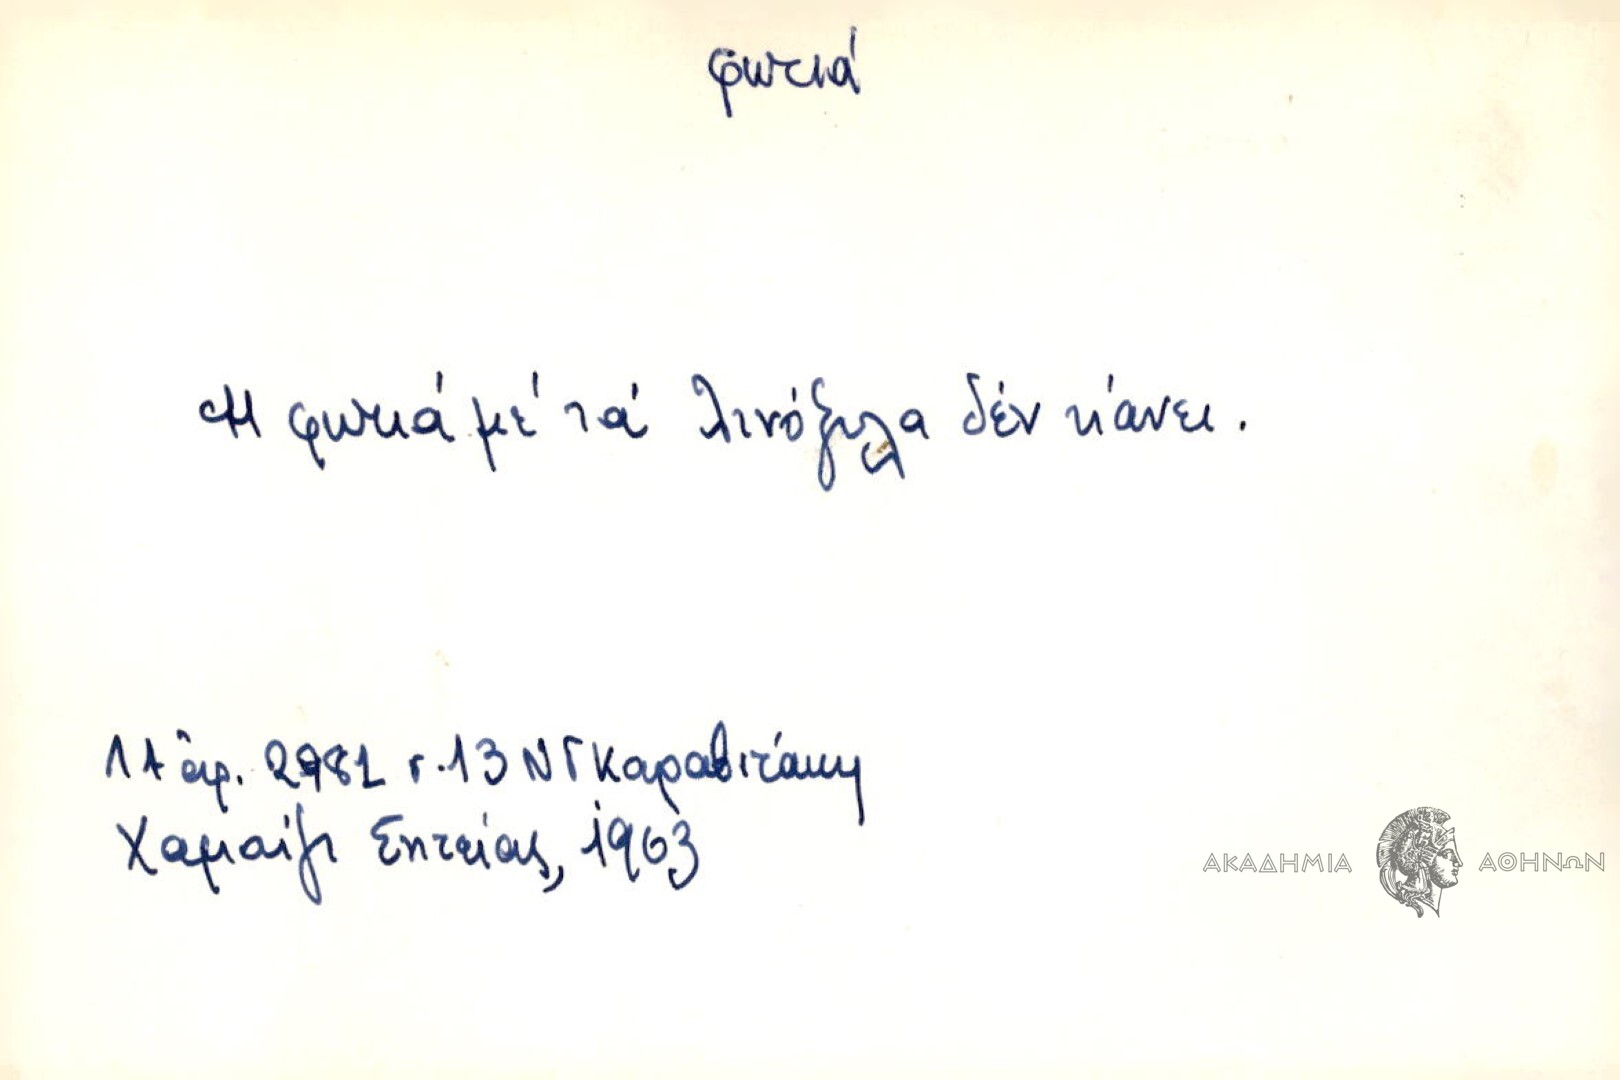 φωτιά
Η φωτιά μέ τά λινόξυλα δέν κάνει.
ΛΑ ἀρ. 2981 σ. 13 Ν Γ Καραβιτάκη
Χαμαίζι Σητείας, 1963
ΑΚΑΔΗΜΙΑ ΑΘΗΝΩΝ